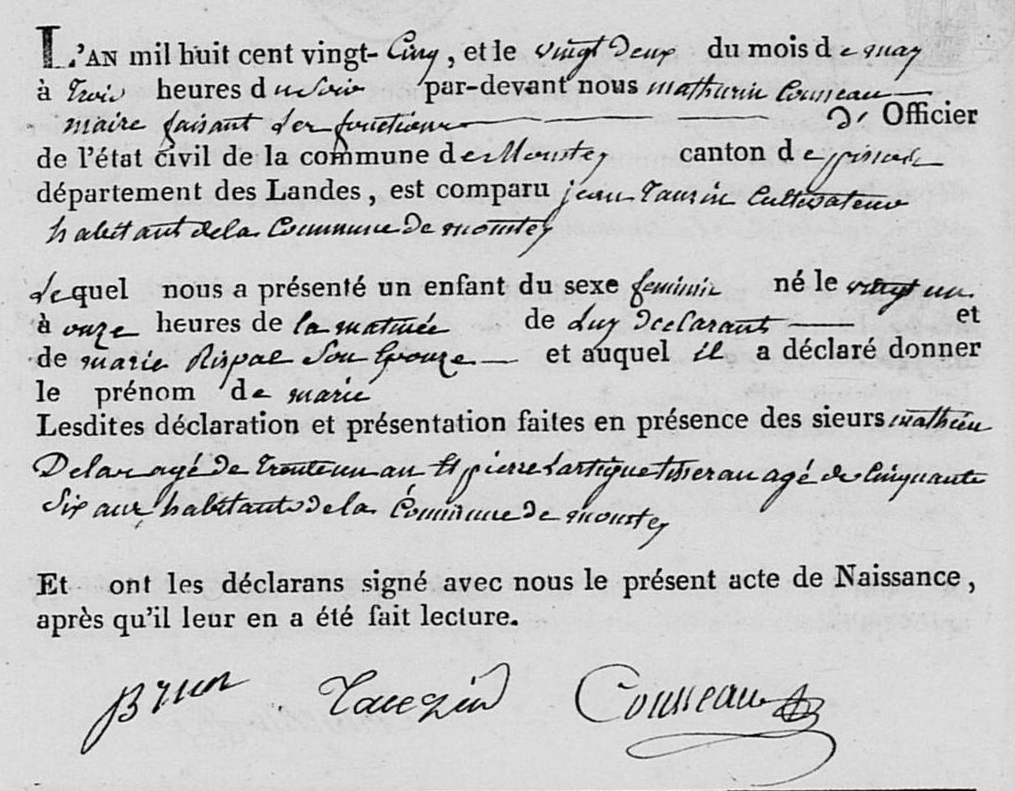 L'AN mil huit cent vingt-Cinq, et le vingt Deux du mois de may
à Trois heures du Soir par-devant nous mathurin Cousseau
maire faisant les fonctions D' Officier
de l'état civil de la commune de Moustey canton de pissos
département des Landes, est comparu jean Tauzin Cultivateur
habitant de la Commune De moustey
Lequel nous a présenté un enfant du sexe feminin né le vingt un
à onze heures de la matinée de Luy Declarant et
de marie Rispal Son Epouze et auquel il a déclaré donner
le prénom de marie
Lesdites déclaration et présentation faites en présence des sieurs mathieu
agé de Trente un an Et pierre Lartigue tisseran agé de Cinquante
Six ans habitants de la Commune De moustey
Et ont les déclarans signé avec nous le présent acte de Naissance,
après qu'il leur en a été fait lecture.
Tauzin Cousseau